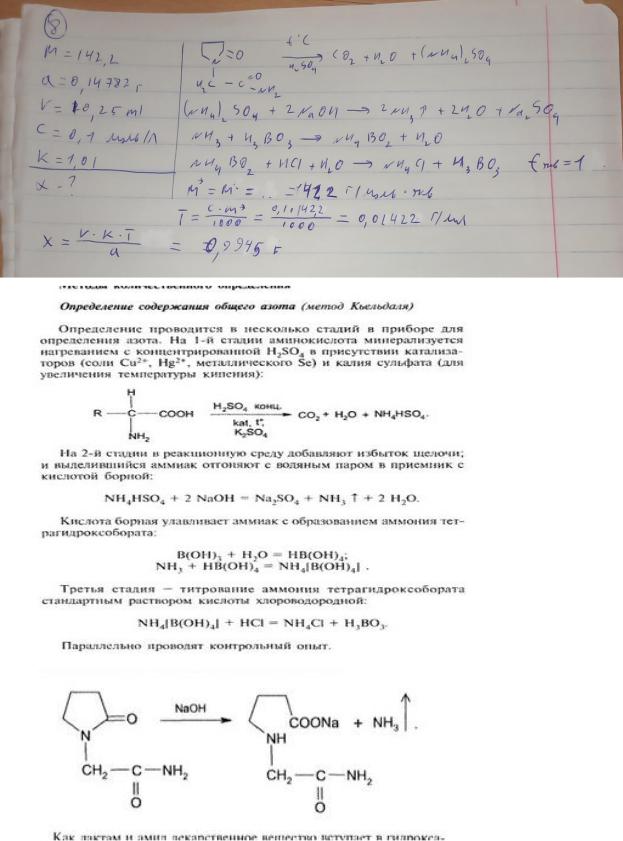 8
M = 142,2
t°C
=O → CO2 + H2O + (NH4)2SO4
H2SO4
a = 0,14782 г
H2C – C =O – NH2
V = 10,25 ml
(NH4)2SO4 + 2NaOH → 2NH3↑ + 2H2O + Na2SO4
C = 0,1 моль/л
NH3 + H3BO3 → NH4BO2 + H2O
K = 1,01
NH4BO2 + HCl + H2O → NH4Cl + H3BO3 fэкв = 1
X - ?
Mэ = M· = .. = 142,2 г/моль·экв
T = C·Mэ / 1000 = 0,1·142,2 / 1000 = 0,01422 г/мл
X = V·K·T / a = 0,9945 г
Методы количественного определения
Определение содержания общего азота (метод Кьельдаля)
Определение проводится в несколько стадий в приборе для
определения азота. На 1-й стадии аминокислота минерализуется
нагреванием с концентрированной H2SO4 в присутствии катализа-
торов (соли Cu2+, Hg2+, металлического Se) и калия сульфата (для
увеличения температуры кипения):
H
H2SO4 конц.
R — C — COOH → CO2 + H2O + NH4HSO4.
kat, t°,
NH2
K2SO4
На 2-й стадии в реакционную среду добавляют избыток щелочи;
и выделившийся аммиак отгоняют с водяным паром в приемник с
кислотой борной:
NH4HSO4 + 2 NaOH = Na2SO4 + NH3 ↑ + 2 H2O.
Кислота борная улавливает аммиак с образованием аммония тет-
рагидроксобората:
B(OH)3 + H2O = HB(OH)4;
NH3 + HB(OH)4 = NH4[B(OH)4] .
Третья стадия — титрование аммония тетрагидроксобората
стандартным раствором кислоты хлороводородной:
NH4[B(OH)4] + HCl = NH4Cl + H3BO3.
Параллельно проводят контрольный опыт.
NaOH
N =O → COONa + NH3↑ .
NH
CH2—C—NH2 CH2—C—NH2
O O
Как лактам и амид лекарственное вещество вступает в гидрокса-